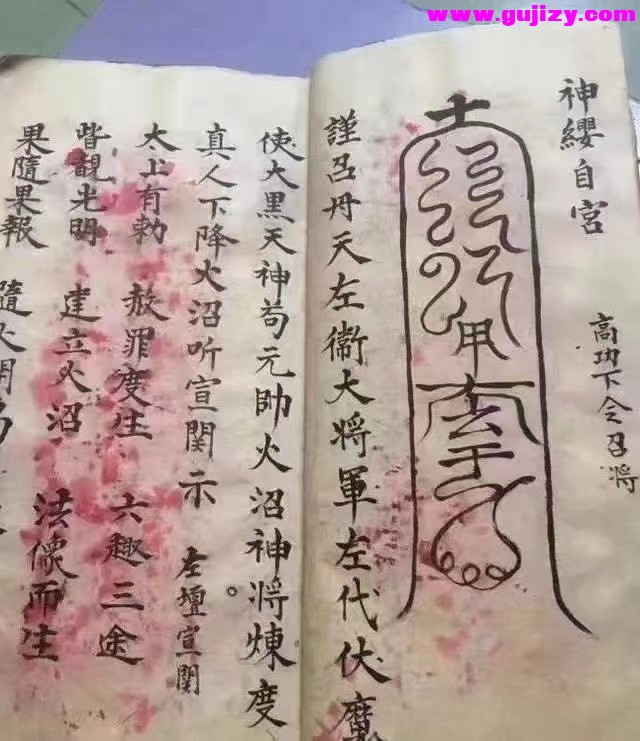 www.gujizy.com
神纓自宮
高功下令召将
甲
謹召丹天左衞大将軍左代伏魔
使大黑天神苟元帥火沼神将煉度
真人下降火沼听宣関示 左壇宣関。
太上有勅 赦罪度生 六趣三途
皆覩光明 建立火沼 法像而生
果隨果報 隨